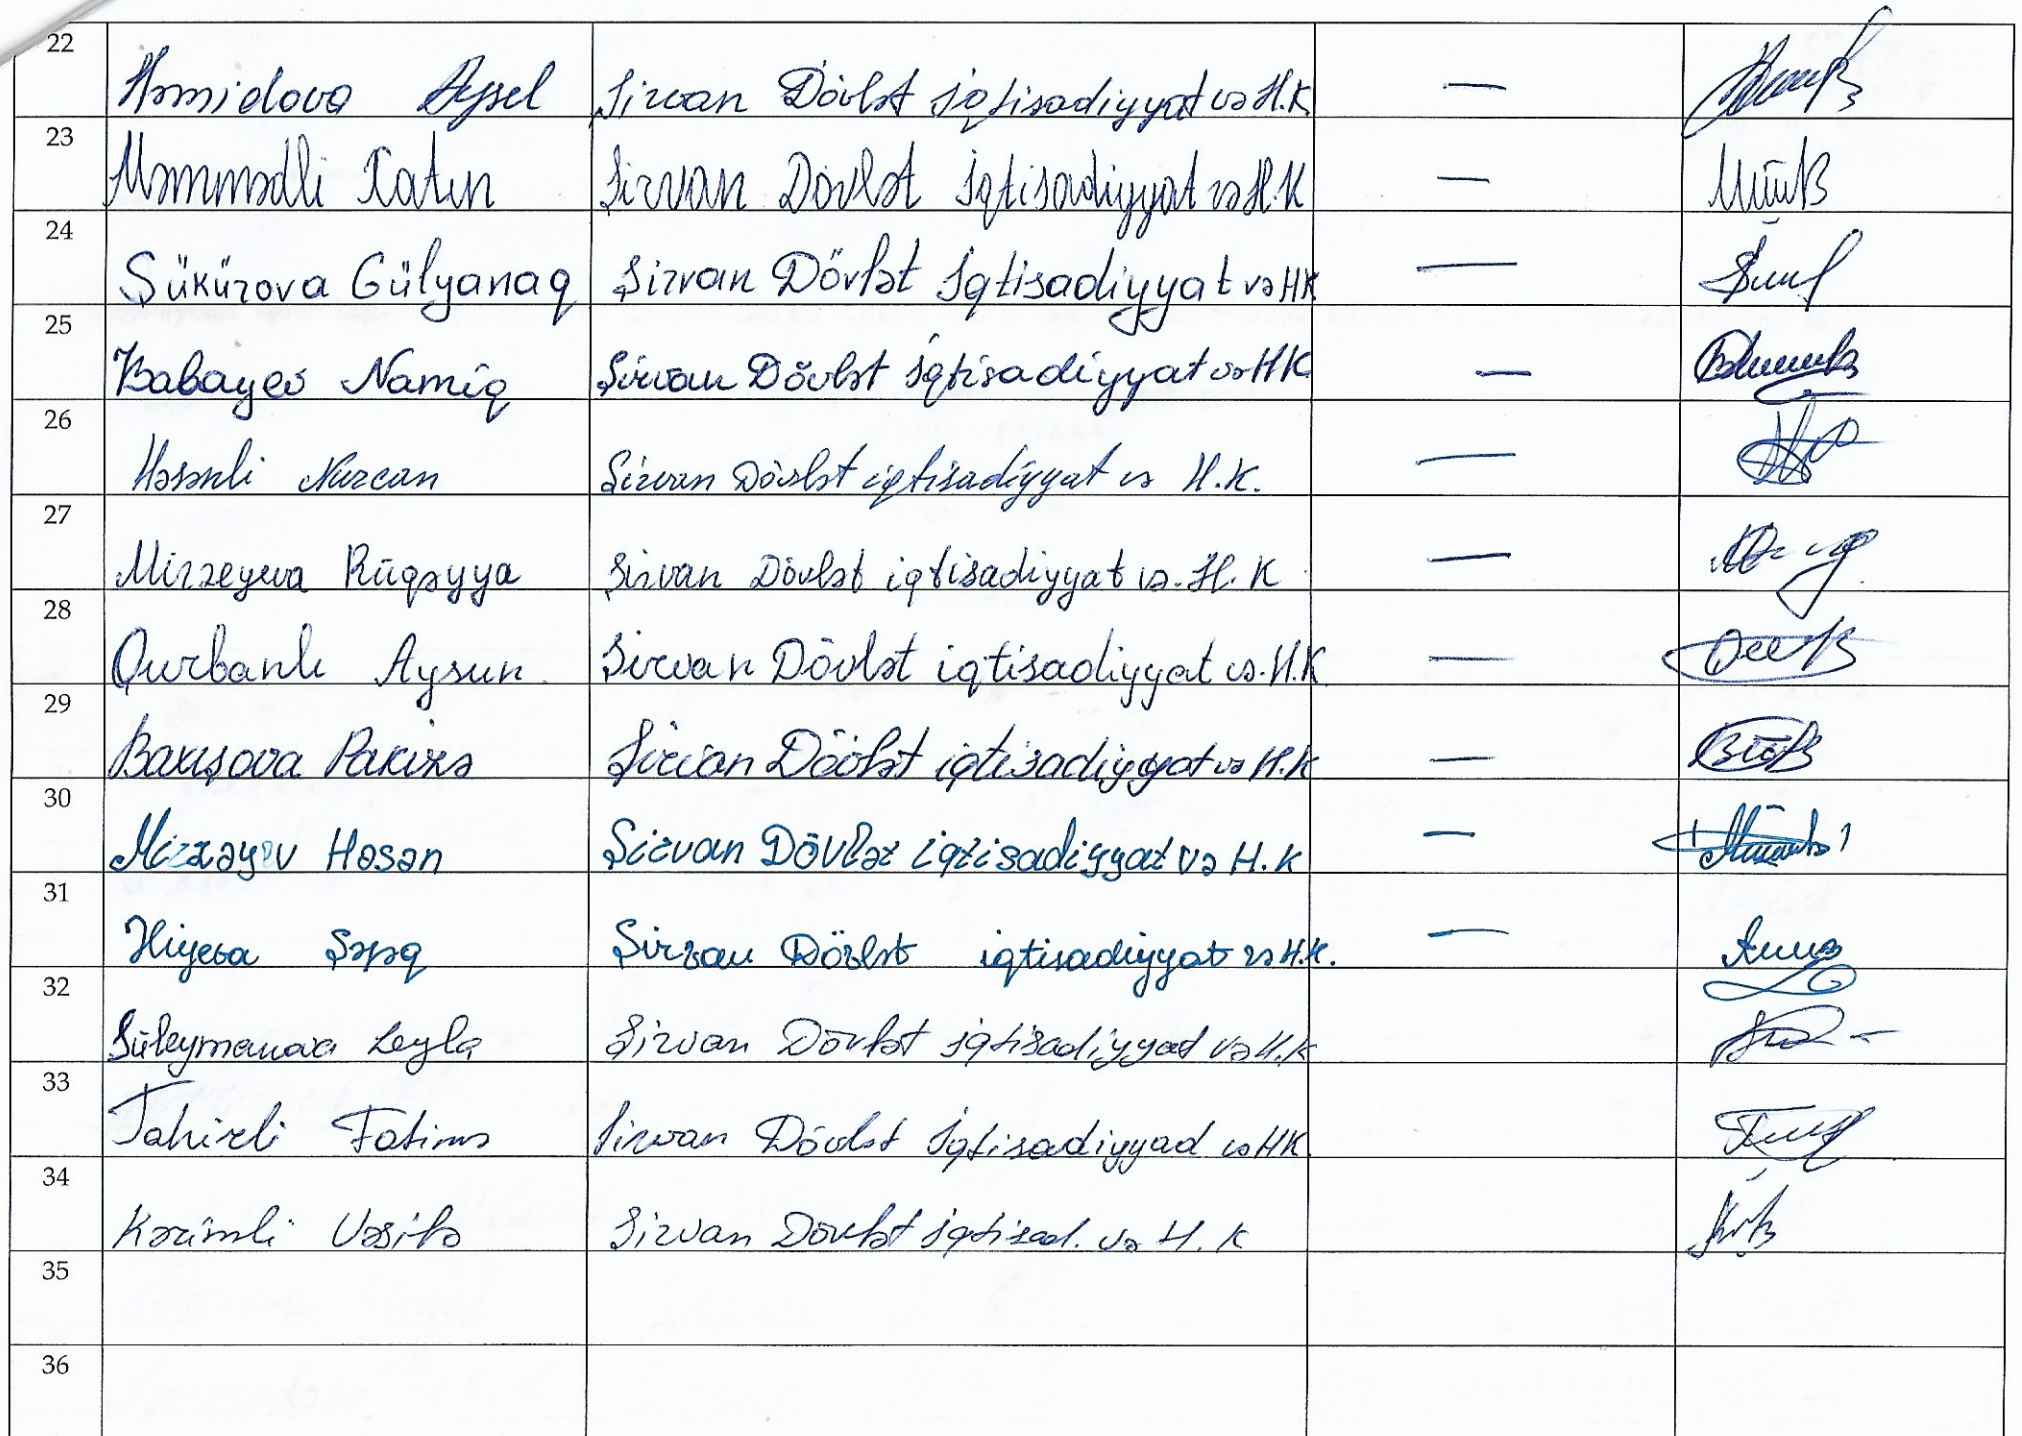 22 Həmidova Aysel Şirvan Dövlət İqtisadiyyat və H.K —
23 Məmmədli Xatın Şirvan Dövlət İqtisadiyyat və H.K —
24 Şükürova Gülyanaq Şirvan Dövlət İqtisadiyyat və HK —
25 Babayev Namiq Şirvan Dövlət İqtisadiyyat və HK —
26 Həsənli Nurcan Şirvan Dövlət iqtisadiyyat və H.K. —
27 Mirzəyeva Rüqəyya Şirvan Dövlət iqtisadiyyat və. H. K —
28 Qurbanlı Aysun Şirvan Dövlət iqtisadiyyat və. H.K —
29 Baxışova Pakizə Şirvan Dövlət iqtisadiyyat və H.K —
30 Mirzəyev Həsən Şirvan Dövlət iqtisadiyyat və H.K —
31 Şirvan Dövlət iqtisadiyyat və H.K. —
32 Süleymanova Leyla Şirvan Dövlət İqtisadiyyat və H.K
33 Tahirli Fatimə Şirvan Dövlət İqtisadiyyad və HK
34 Kərimli Vəsilə Şirvan Dövlət İqtisad. və H. K
35
36